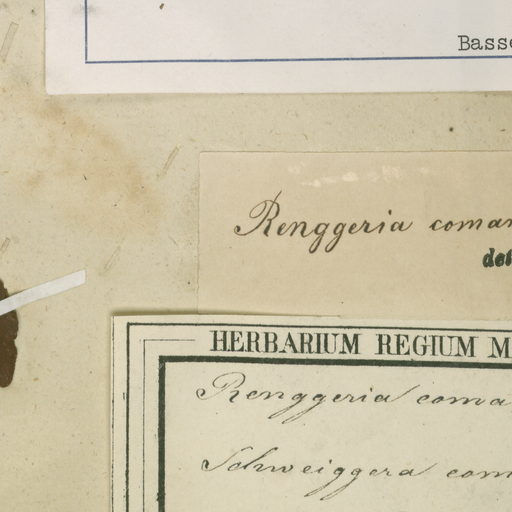 Basse
Renggeria coman
det
HERBARIUM REGIUM M
Renggeria coma
Schweiggera com